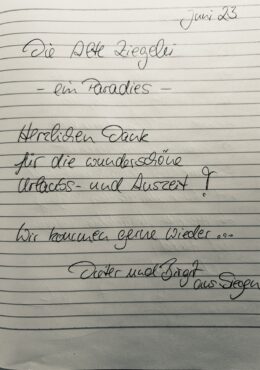 Juni 23
Die Alte Ziegelei
- ein Paradies -
Herzlichen Dank
für die wunderschöne
Urlaubs- und Auszeit !
Wir kommen gerne wieder...
Dieter und Birgit
aus Siegen